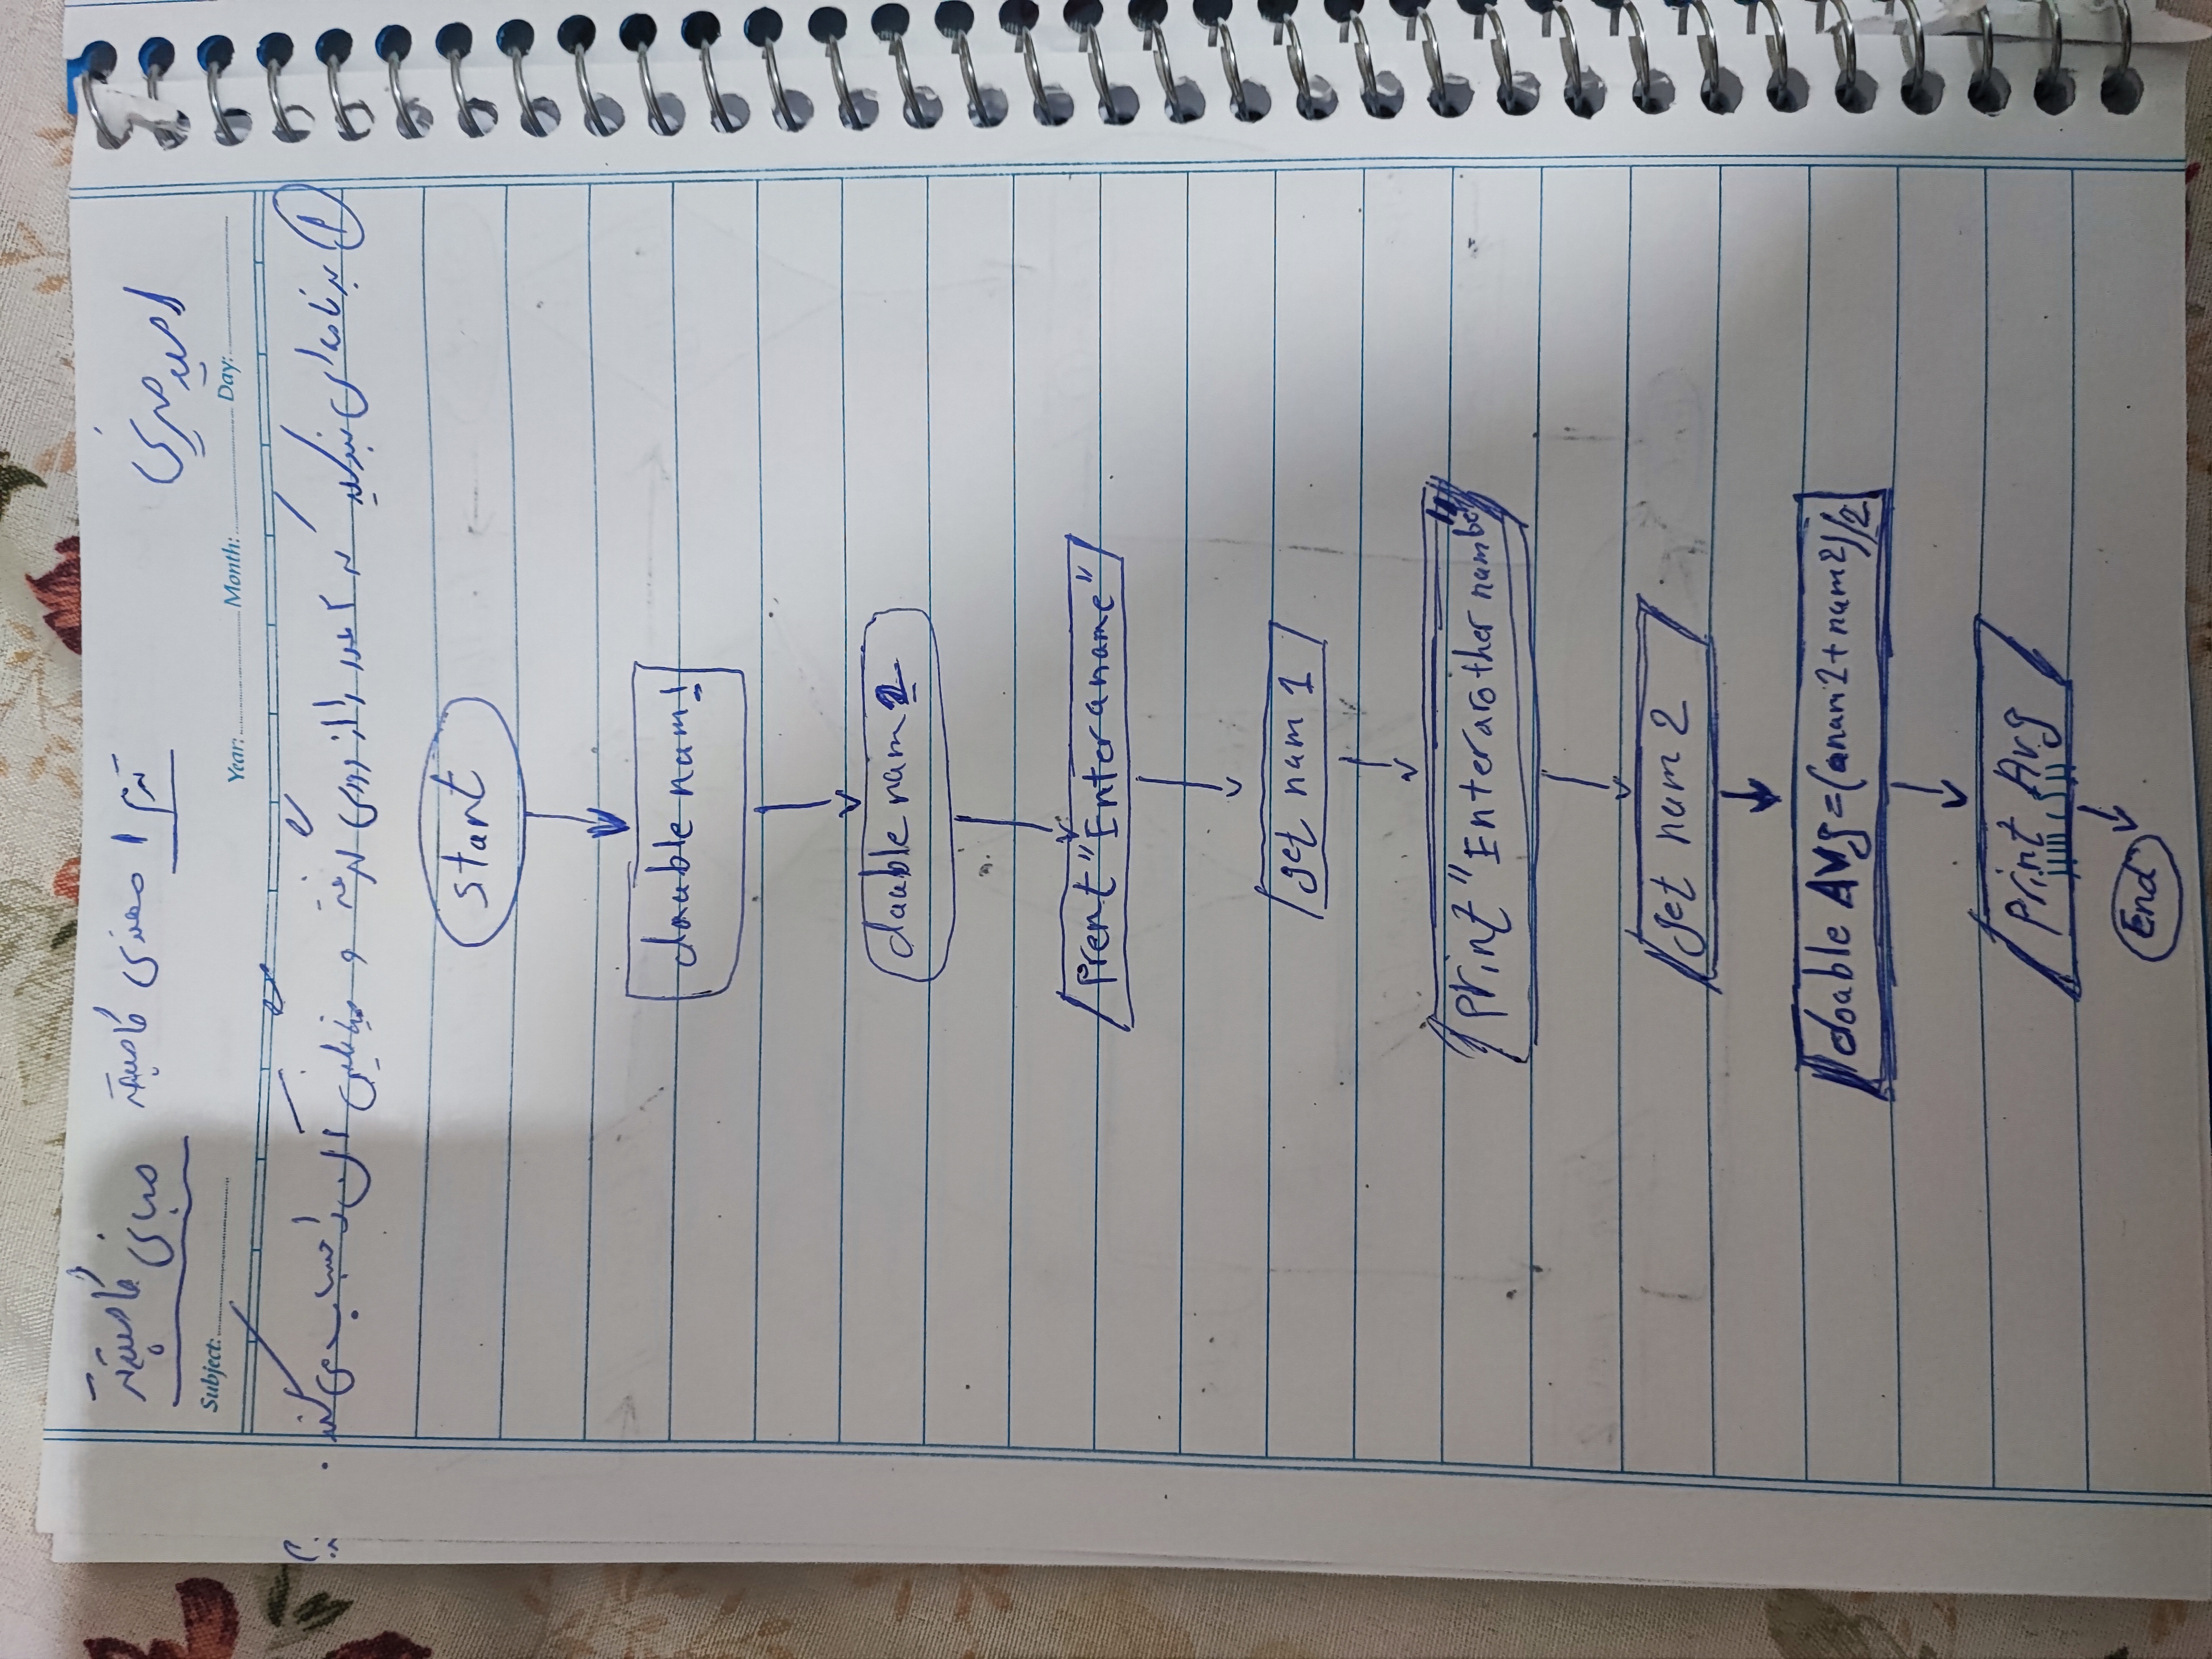 امیر صدری
ترم 1 مهندسی کامپیوتر
مبانی کامپیوتر
Subject: Year: Month: Day:
1) برنامه ای بنویسید که دو عدد را از ورودی گرفته و میانگین آن را حساب می کند.
start
double num1
double num2
Prent "Enter a name"
get num 1
Print "Enter arother number"
get num 2
double Avg = (anam2+num2)/2
Print Avg
End